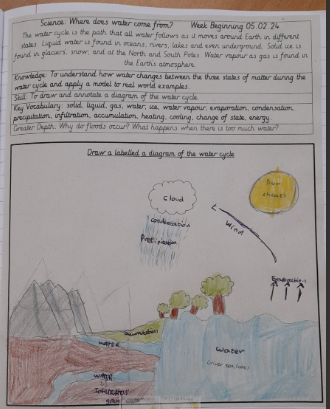 Science: Where does water come from? Week Beginning 05.02.24
The water cycle is the path that all water follows as it moves around Earth in different
states. Liquid water is found in oceans, rivers, lakes and even underground. Solid ice is
found in glaciers, snow, and at the North and South Poles. Water vapour as gas is found in
the Earth's atmosphere.
Knowledge: To understand how water changes between the three states of matter during the
water cycle and apply a model to real world examples.
Skill: To draw and annotate a diagram of the water cycle.
Key Vocabulary: solid, liquid, gas, water, ice, water vapour, evaporation, condensation,
precipitation, infiltration, accumulation, heating, cooling, change of state, energy.
Greater Depth: Why do floods occur? What happens when there is too much water?
Draw a labelled a diagram of the water cycle
Cloud
Condensation
Precipitation
Wind
Evaporation
accumulation
WATER
Water
WATER